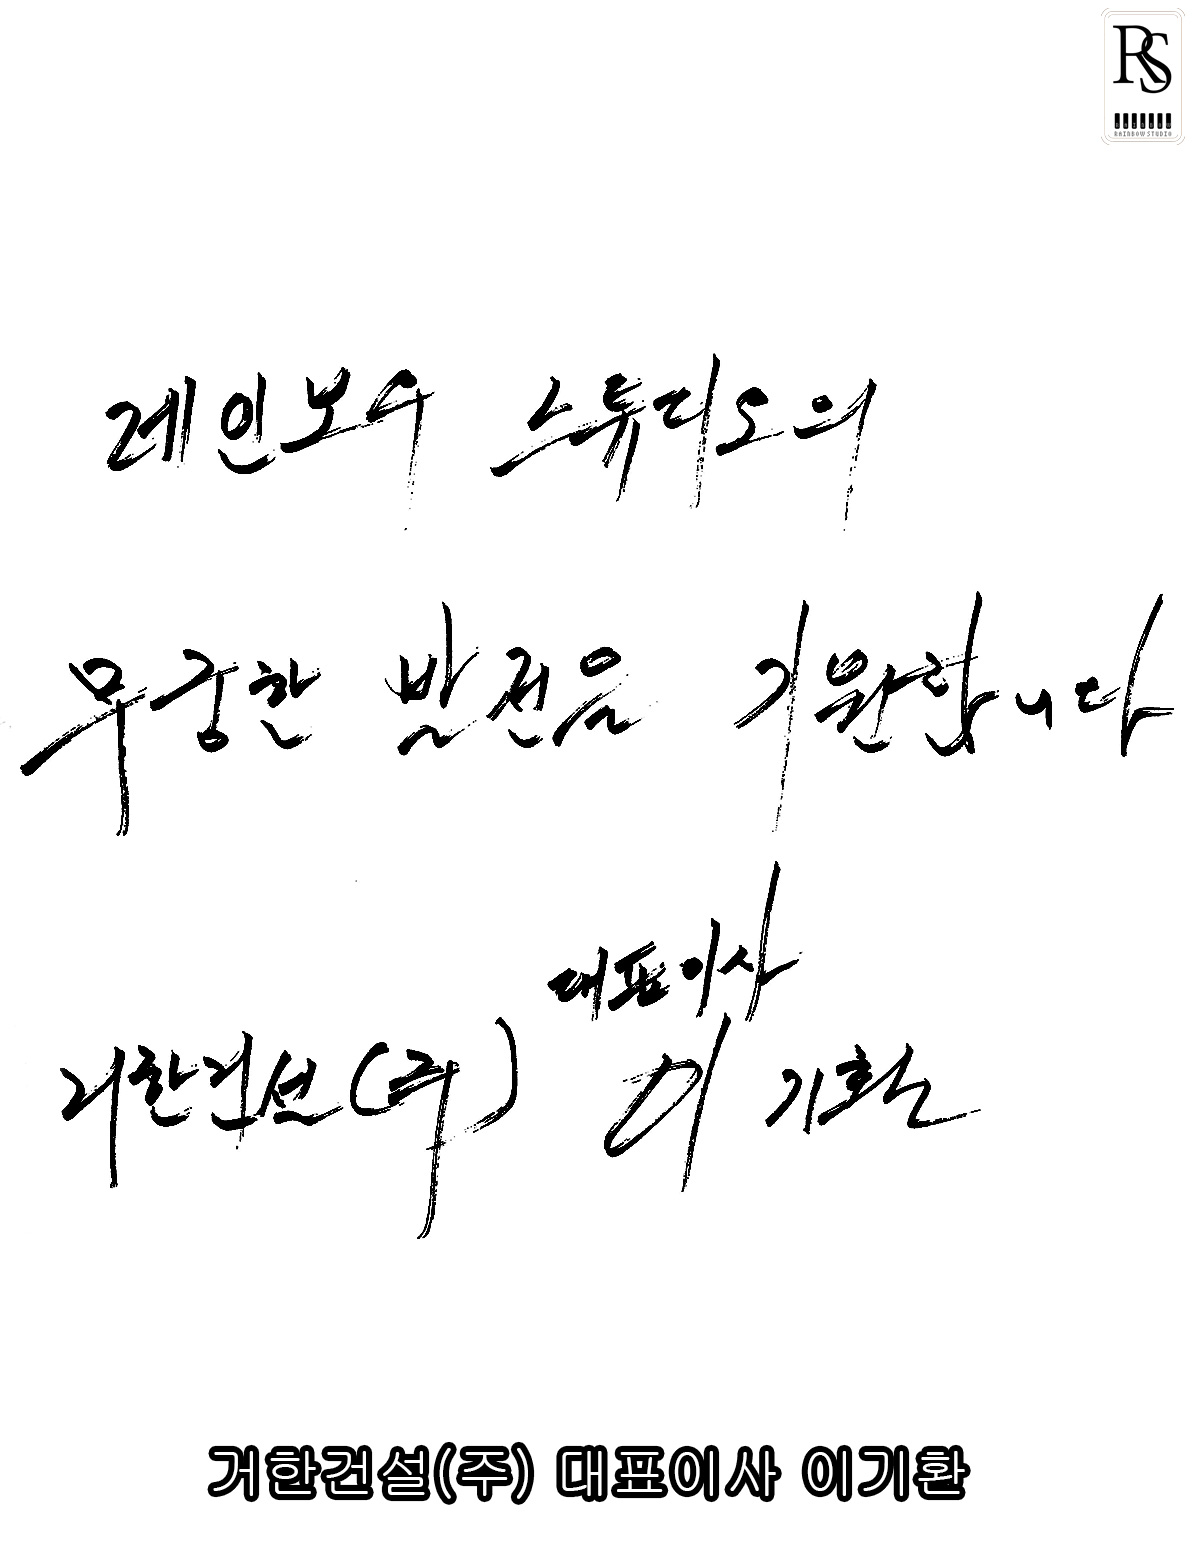 RS
RAINBOW STUDIO
레인보우 스튜디오의
무궁한 발전을 기원합니다
대표이사
거한건설(주) 이기환
거한건설(주) 대표이사 이기환